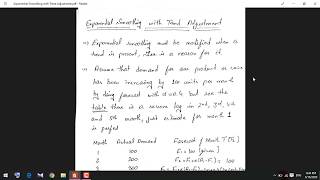 Exponential Smoothing with Trend Adjustment
Exponential Smoothing must be modified when a
trend is present, there is a reason for it
Assume that demand for our product or service
has been increasing by 100 units per month
by doing forecast with α = 0.4 but see the
table there is a severe lag in 2nd, 3rd, 4th
and 5th month, Just estimate for month 1
is perfect
Month Actual Demand Forecast of Month T (Ft)
1 100 F1 = 100 (given)
2 200 F2 = F1 + α(A1 - F1) = 100
3 300